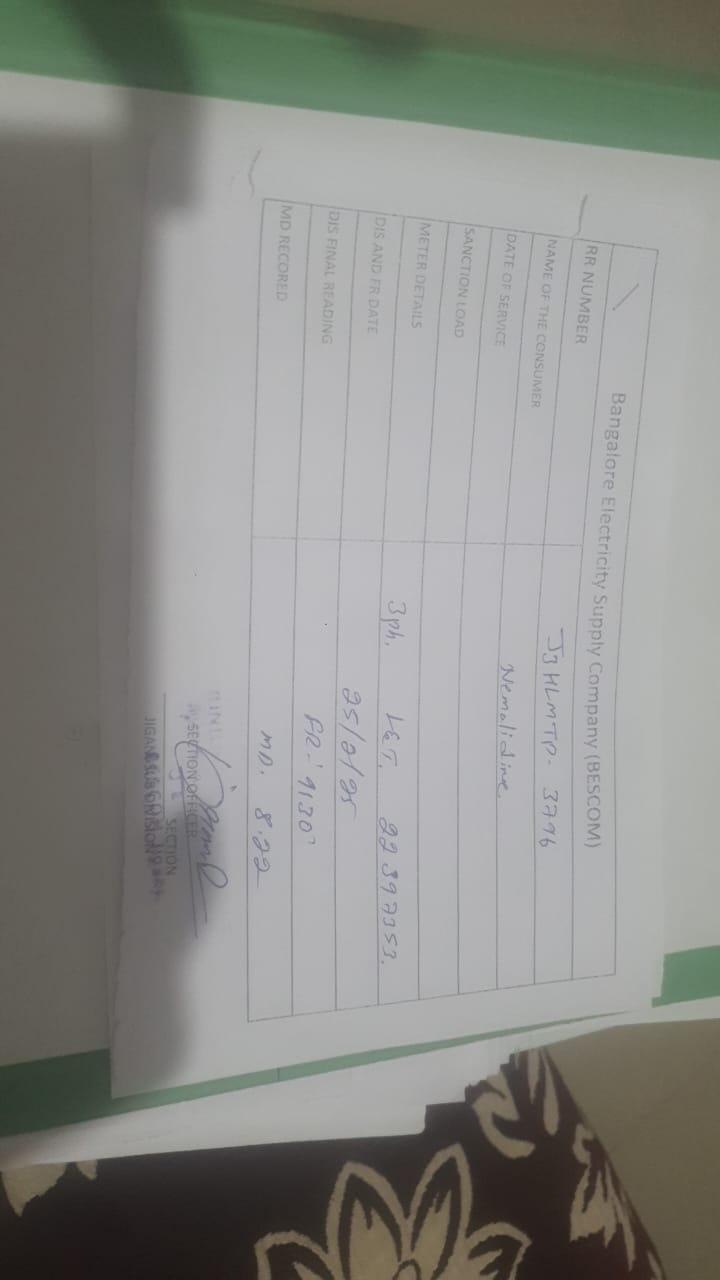 Bangalore Electricity Supply Company (BESCOM)
RR NUMBER J3HLMTP- 3796
NAME OF THE CONSUMER Nemalidine.
DATE OF SERVICE
SANCTION LOAD
METER DETAILS 3ph. L&T. 22397353.
DIS AND FR DATE 25/2/25
DIS FINAL READING FR-'9130'
MD RECORED MD. 8.22
SECTION OFFICER
SECTION